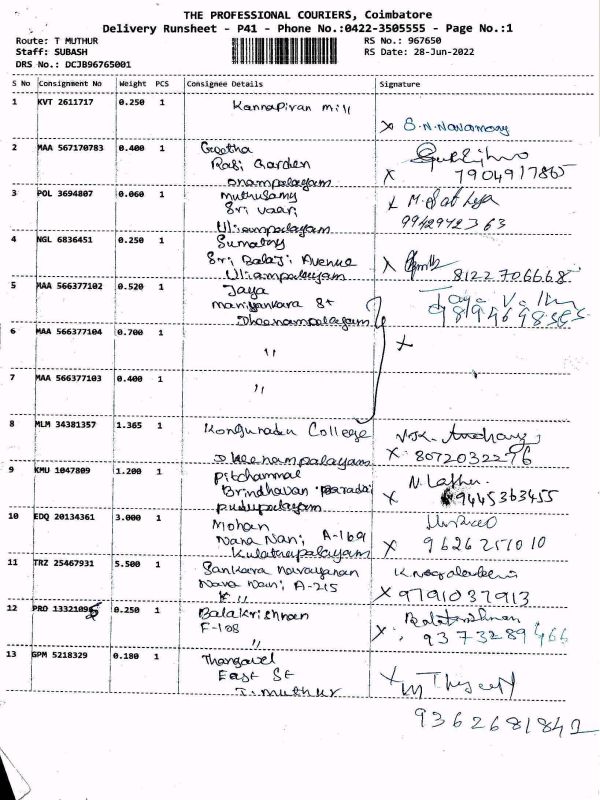 THE PROFESSIONAL COURIERS, Coimbatore
Delivery Runsheet - P41 - Phone No.:0422-3505555 - Page No.:1
Route: T MUTHUR
RS No.: 967650
Staff: SUBASH
RS Date: 28-Jun-2022
DRS No.: DCJB96765001
S No Consignment No Weight PCS Consignee Details Signature
1 KVT 2611717 0.250 1 Kannapiran mill
X S.N. Navamany
2 MAA 567170783 0.400 1 Geetha
Rasi Garden
X 7904917865
onampalayam
3 POL 3694807 0.060 1 Muthusamy
Sri vaari
X M.
9942942363
Uliampalayam
4 NGL 6836451 0.250 1 Sumathy
Sri Balaji Avenue
X 8122706668
Uliampalayam
5 MAA 566377102 0.520 1 Jaya
mariyankara St
Dheenampalayam
Jaya
6 MAA 566377104 0.700 1
X
"
7 MAA 566377103 0.400 1
"
8 MLM 34381357 1.365 1 Kongunadu College
Dheenampalayam
X 8072032296
9 KMU 1047809 1.200 1 Pitchammal
Brindhavan
X 9445363455
pudupalayam
10 EDQ 20134361 3.000 1 Mohan
Nana Nani, A-169
X 9626251010
Kulathupalayam
11 TRZ 25467931 5.500 1 Sankara narayanan
Nana Nani A-215
X 9791037913
12 PRO 13321095 0.250 1 Balakrishnan
F-108
Balakrishnan
X 9373289466
"
13 GPM 5218329 0.180 1 Thangavel
East St
X
T. muthur
9362681841